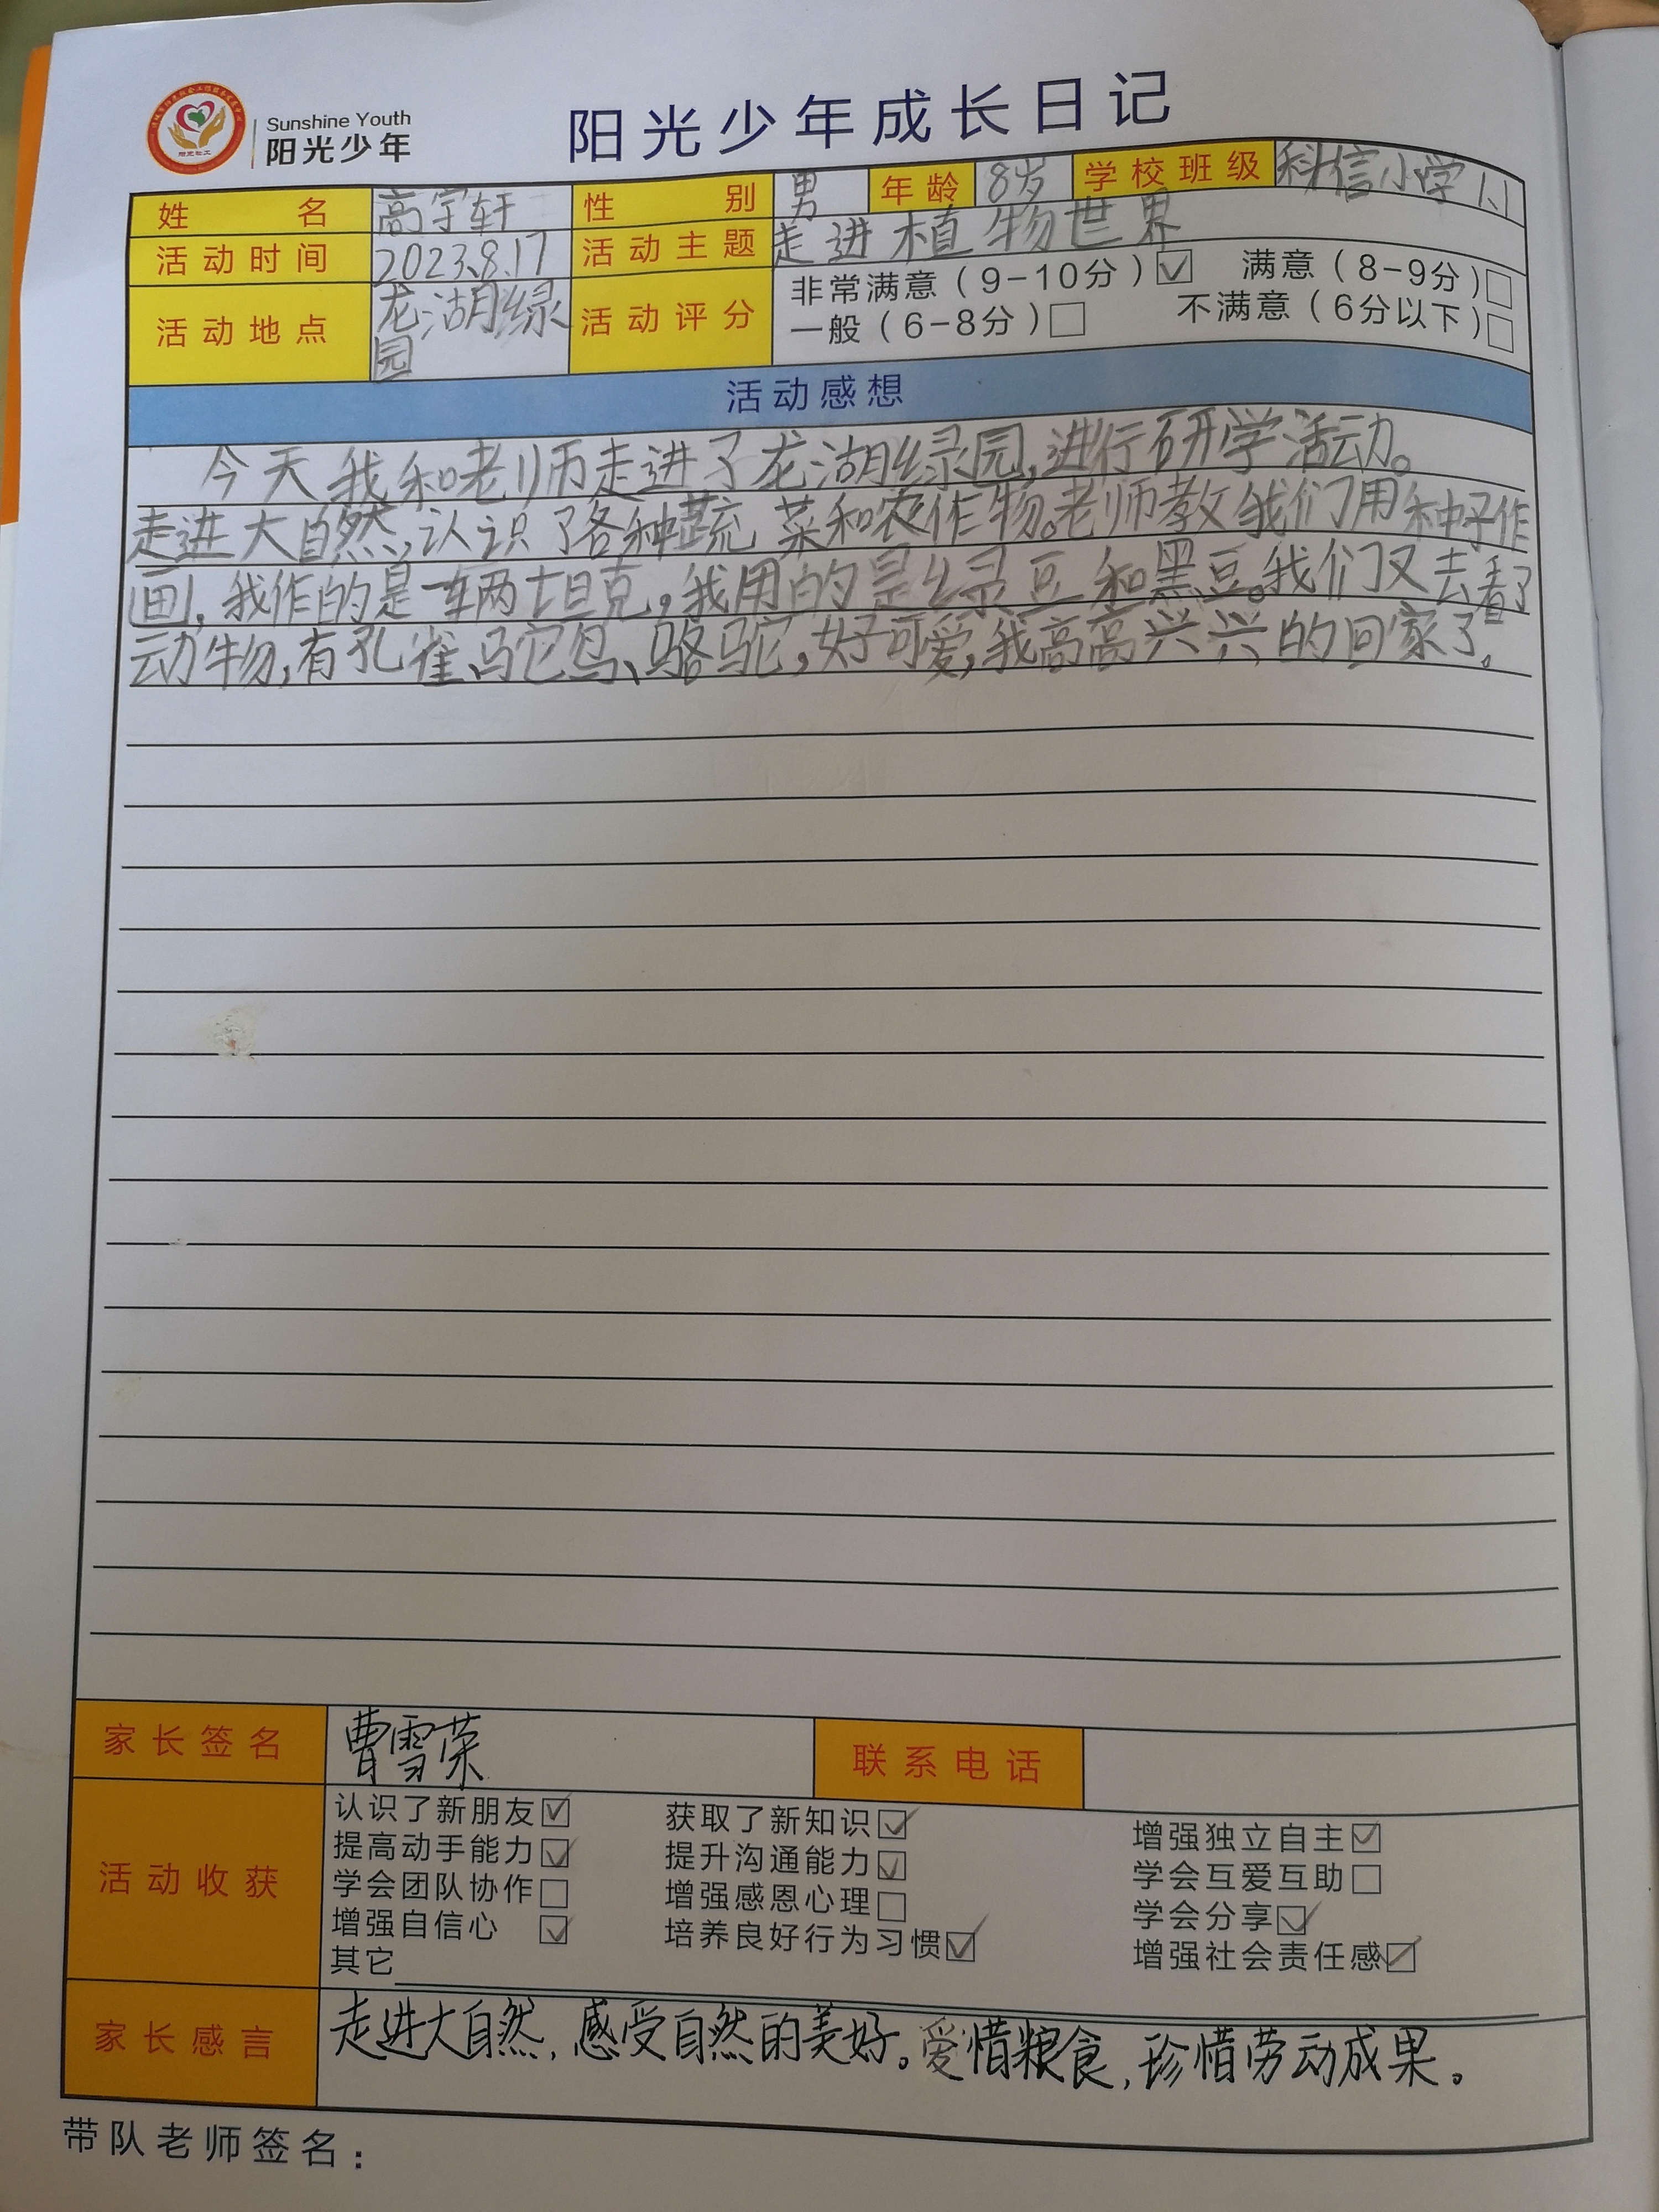 Sunshine Youth
阳光少年
阳光少年成长日记
姓名 高宇轩 性别 男 年龄 8岁 学校班级 科信小学1.1
活动时间 2023.8.17 活动主题 走进植物世界
活动地点 龙湖绿园 活动评分 非常满意(9-10分)☑ 满意(8-9分)□
一般(6-8分)□ 不满意(6分以下)□
活动感想
今天我和老师走进了龙湖绿园,进行研学活动。
走进大自然,认识了各种蔬菜和农作物。老师教我们用种子作
画,我作的是一辆坦克。我用的是绿豆和黑豆。我们又去看了
动物,有孔雀、鸵鸟、骆驼,好可爱,我高高兴兴的回家了。
家长签名 曹雪荣 联系电话
活动收获
认识了新朋友☑ 获取了新知识☑ 增强独立自主☑
提高动手能力☑ 提升沟通能力☑ 学会互爱互助□
学会团队协作□ 增强感恩心理□ 学会分享☑
增强自信心☑ 培养良好行为习惯☑ 增强社会责任感☑
其它
家长感言 走进大自然,感受自然的美好。爱惜粮食,珍惜劳动成果。
带队老师签名: